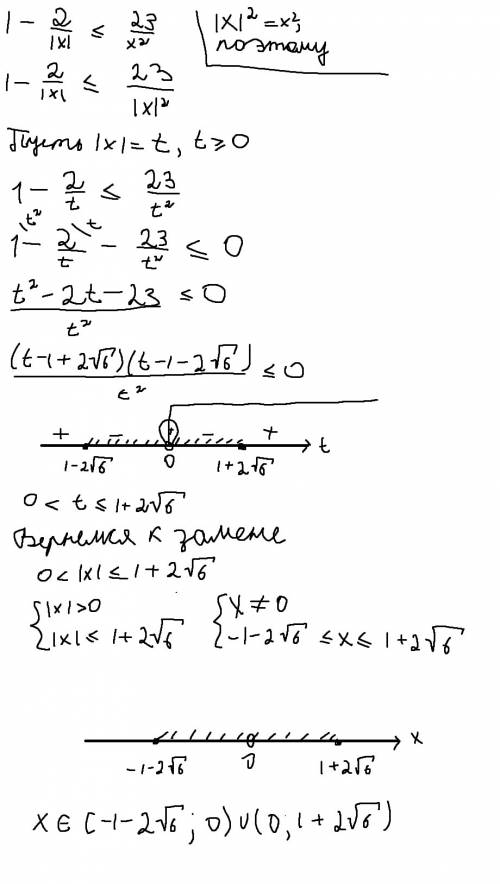 1 - 2/|x| ≤ 23/x²
|x|² = x²;
поэтому
1 - 2/|x| ≤ 23/|x|²
Пусть |x| = t, t ≥ 0
1 - 2/t ≤ 23/t²
1\t² - 2/t\t - 23/t² ≤ 0
(t² - 2t - 23)/t² ≤ 0
(t - 1 + 2√6)(t - 1 - 2√6)/t² ≤ 0
+ - - +
1-2√6 0 1+2√6 t
0 < t ≤ 1+2√6
Вернемся к замене
0 < |x| ≤ 1 + 2√6
{|x| > 0 {x ≠ 0
{|x| ≤ 1 + 2√6 {-1-2√6 ≤ x ≤ 1+2√6
-1-2√6 0 1+2√6 x
x ∈ [-1-2√6; 0) ∪ (0; 1+2√6)